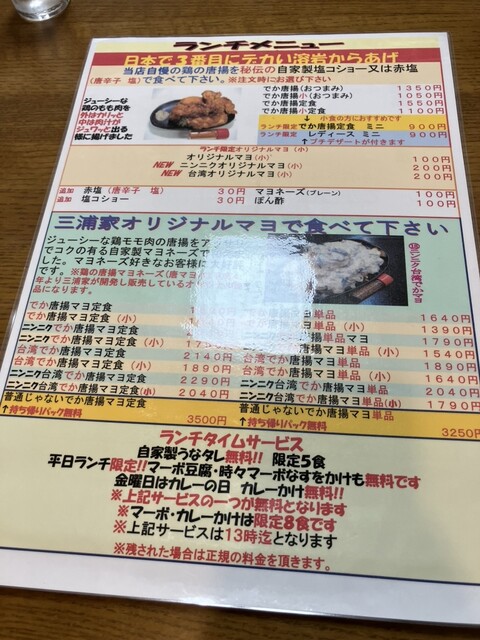 ランチメニュー
日本で3番目にデカい溶岩からあげ
当店自慢の鶏の唐揚を秘伝の自家製塩コショー又は赤塩
(唐辛子 塩)で食べて下さい。※注文時にお選び下さい
ジューシーな
鶏のもも肉を
外はカリッと
中は肉汁が
ジュワッと出る
様に揚げました
でか唐揚(おつまみ) 1350円
でか唐揚小(おつまみ) 1050円
でか唐揚定食 1550円
でか唐揚小定食 1100円
↓小食の方におすすめです
ランチ限定 でか唐揚定食 ミニ 900円
ランチ限定 レディース ミニ 900円
↑プチデザートが付きます
ランチ限定オリジナルマヨ(小)
オリジナルマヨ(小) 100円
NEW ニンニクオリジナルマヨ(小) 200円
NEW 台湾オリジナルマヨ(小) 200円
追加 赤塩(唐辛子 塩) 30円 マヨネーズ(プレーン) 100円
追加 塩コショー 30円 ぽん酢 100円
三浦家オリジナルマヨで食べて下さい
ジューシーな鶏モモ肉の唐揚をア
でコクの有る自家製マヨネーズで
した。マヨネーズ好きなお客様に
です。※鶏の唐揚マヨネーズ(唐マヨ
年より三浦家が開発し販売しているオ
品になります。
⑱ニンニク台湾でかマヨ
でか唐揚マヨ定食
でか唐揚マヨ定食(小)
ニンニクでか唐揚マヨ定食
ニンニクでか唐揚マヨ定食(小)
台湾でか唐揚マヨ定食 2140円
台湾でか唐揚マヨ定食(小) 1890円
ニンニク台湾でか唐揚マヨ定食 2290円
ニンニク台湾でか唐揚マヨ定食(小) 2040円
普通じゃないでか唐揚マヨ定食
↑持ち帰りパック無料 3500円
マヨ単品 1640円
マヨ単品(小) 1390円
唐揚単品マヨ 1790円
揚マヨ単品(小) 1540円
台湾でか唐揚マヨ単品 1890円
台湾でか唐揚マヨ単品(小) 1640円
ニンニク台湾でか唐揚マヨ単品 2040円
ニンニク台湾でか唐揚マヨ単品(小) 1790円
普通じゃないでか唐揚マヨ単品
↑持ち帰りパック無料 3250円
ランチタイムサービス
自家製うなダレ無料!! 限定5食
平日ランチ限定!!マーボ豆腐・時々マーボなすをかけも無料です
金曜日はカレーの日 カレーかけ無料!!
※上記サービスの一つが無料となります
※マーボ・カレーかけは限定8食です
※上記サービスは13時迄となります
※残された場合は正規の料金を頂きます。